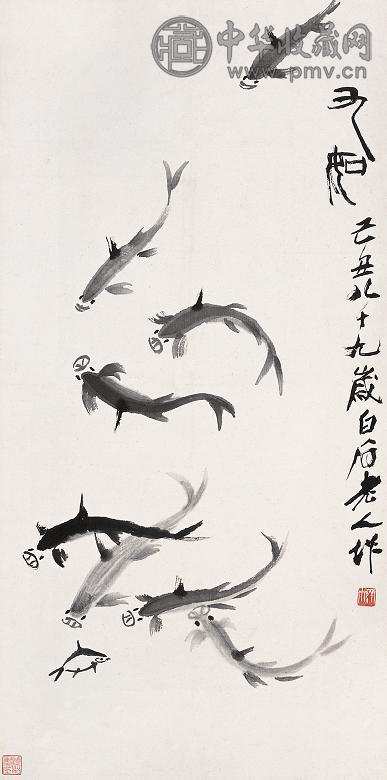 中华收藏网
www.pmv.cn
九如
己丑八十九歲白石老人作